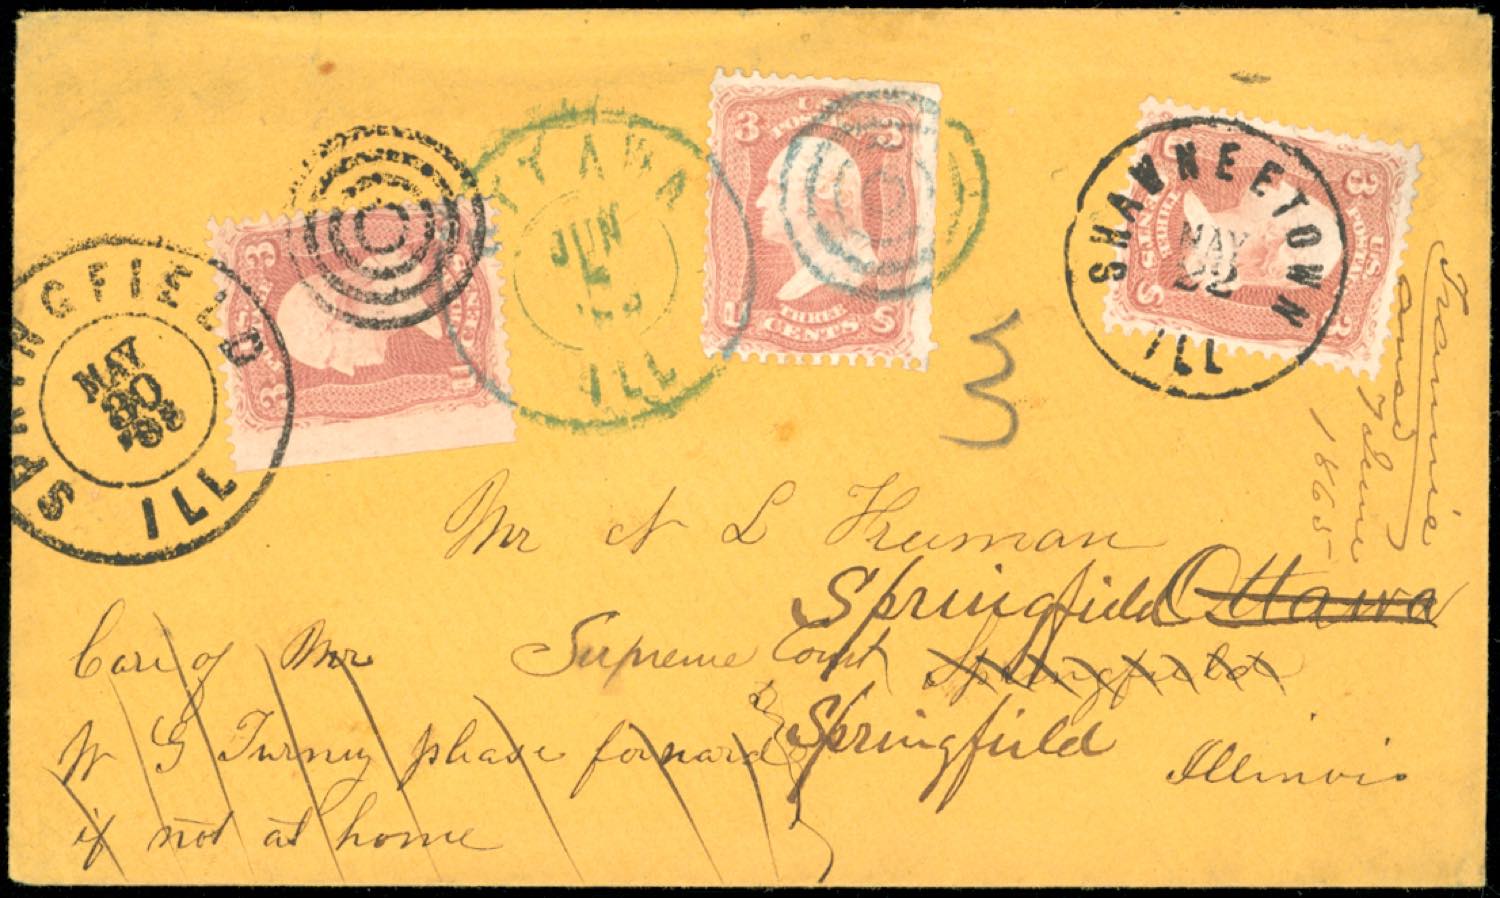 SPRINGFIELD
MAY
30
ILL
3
3
OTTAWA
JUN
ILL
U.S.
POSTAGE
3 3
THREE
U CENTS S
3
SHAWNEETOWN
MAY
22
ILL
3
U.S.
POSTAGE
THREE
CENTS
3
S
1865
Mr N L Freeman
Springfield Ottawa
Supreme Court Springfield
Springfield
Illinois
Care of Mr
W G Turney please forward
if not at home